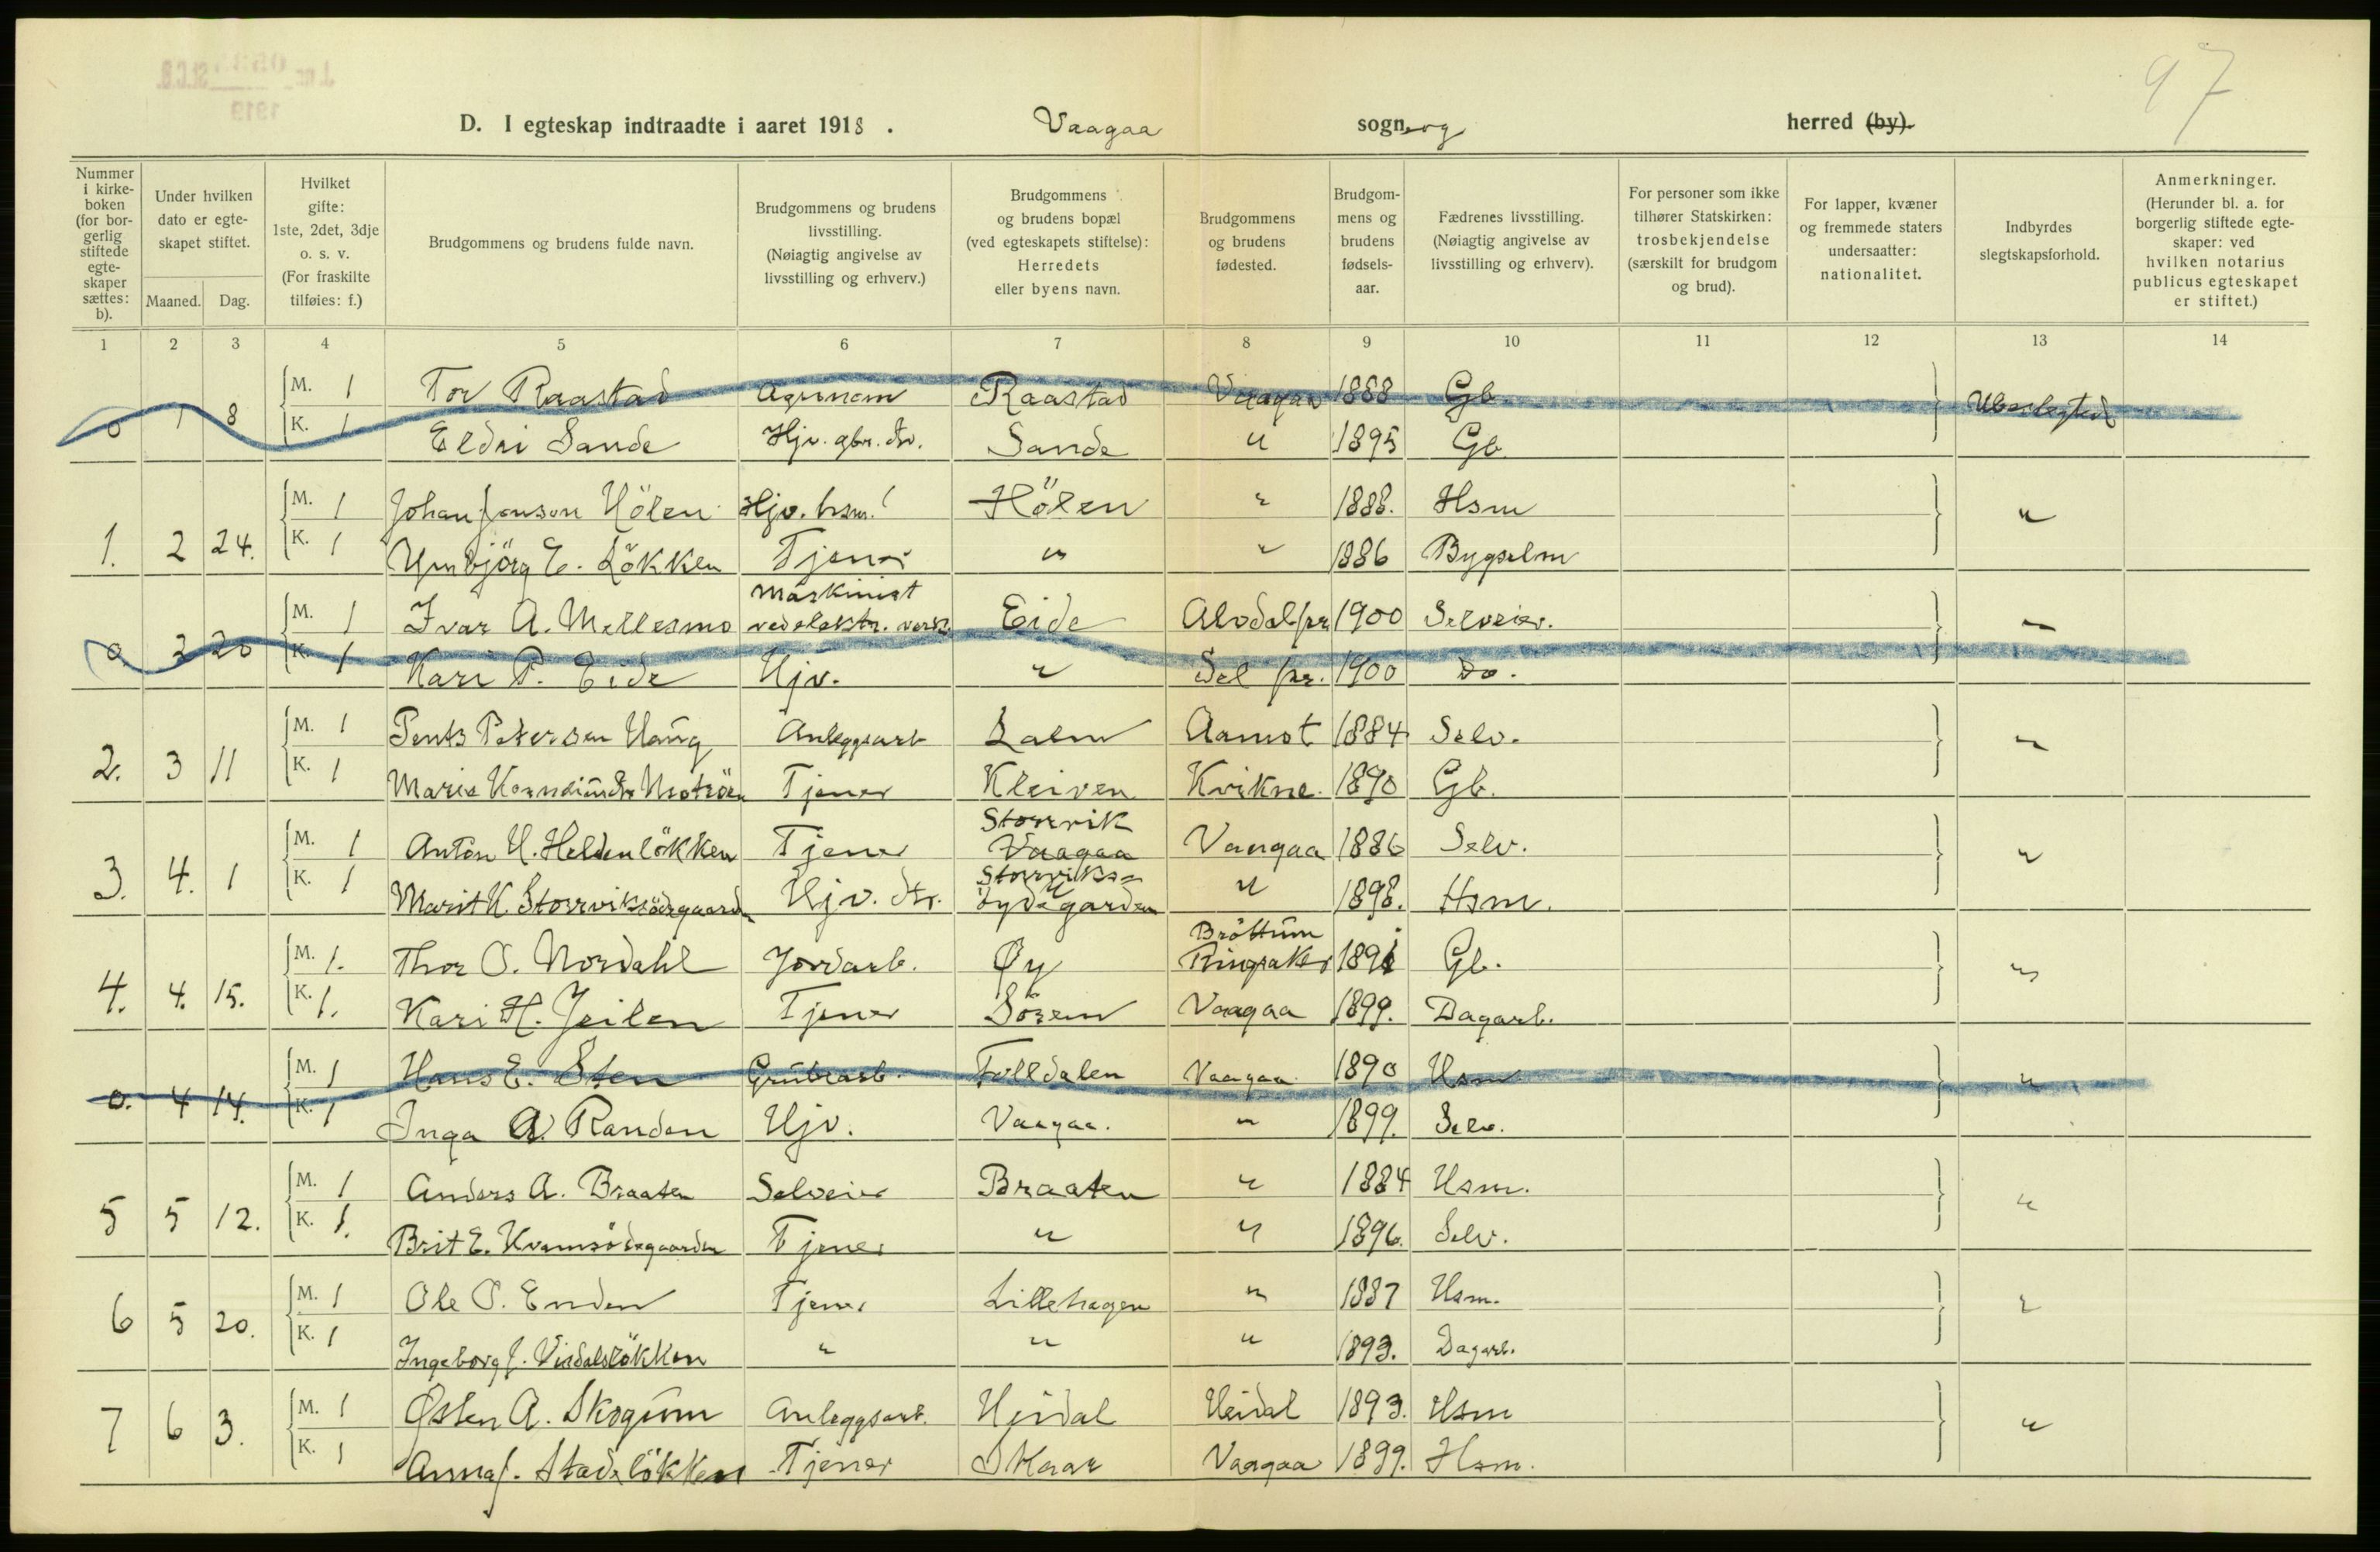 97
D. I egteskap indtraadte i aaret 1918. Vaagaa sogn og herred (by).
Nummer i kirkeboken (for borgerlig stiftede egteskaper sættes: b).
Under hvilken dato er egteskapet stiftet.
Maaned. Dag.
Hvilket gifte: 1ste, 2det, 3dje o. s. v. (For fraskilte tilføies: f.)
Brudgommens og brudens fulde navn.
Brudgommens og brudens livsstilling. (Nøiagtig angivelse av livsstilling og erhverv.)
Brudgommens og brudens bopæl (ved egteskapets stiftelse): Herredets eller byens navn.
Brudgommens og brudens fødested.
Brudgommens og brudens fødselsaar.
Fædrenes livsstilling. (Nøiagtig angivelse av livsstilling og erhverv).
For personer som ikke tilhører Statskirken: trosbekjendelse (særskilt for brudgom og brud).
For lapper, kvæner og fremmede staters undersaatter: nationalitet.
Indbyrdes slegtskapsforhold.
Anmerkninger. (Herunder bl. a. for borgerlig stiftede egteskaper: ved hvilken notarius publicus egteskapet er stiftet.)
1 2 3 4 5 6 7 8 9 10 11 12 13 14
0 1 8 M. 1 Tor Raastad Agronom Raastad Vaagaa 1888 Gb Ubeslegted
K. 1 Eldri Sande Hjv. gbr. dtr. Sande " 1895 Gb
1. 2 24. M. 1 Johan Jonson Hölen Hjv. hsm. Hölen " 1888. Hsm "
K. 1 Ymbjörg E. Lökken Tjener " " 1886 Bygselm
0 3 20 M. 1 Ivar A. Mellesmo Maskinist ved elektr. verk. Eide Alvdal pr 1900 Selveier. "
K. 1 Kari P. Eide Hjv. " Sel pr. 1900 Do.
2. 3 11 M. 1 Petersen Haug Anleggsarb Lalm Aamot 1884 Selv. "
K. 1 Marie Tjener Kleiven Kvikne. 1890 Gb.
3. 4. 1 M. 1 Anton H. Heldenlökken Tjener Storvik Vaagaa Vaagaa 1886 Selv. "
K. 1 Marit K. Storviksödegaarden Hjv. dtr. Storviks= ödegarden " 1898. Hsm.
4. 4. 15. M. 1. Thor O. Nordahl Jordarb. Øy Bröttum Ringsaker 1891 Gb. "
K. 1. Kari H. Jeilen Tjener Sörem Vaagaa 1899. Dagarb.
0. 4 14. M. 1 Hans E. Sten Grubearb. Folldalen Vaagaa 1890 Hsm "
K. 1 Inga A. Randen Hjv. Vaagaa. " 1899. Selv.
5 5 12. M. 1 Anders A. Braaten Selveier Braaten " 1884 Hsm. "
K. 1. Brit E. Kvamsödegaarden Tjener " " 1896. Selv.
6 5 20. M. 1 Ole O. Enden Tjener Lillehagen " 1887 Hsm. "
K. 1 Ingeborg J. Visdalslökken " " " 1893. Dagarb.
7 6 3. M. 1 Østen A. Skogum Anleggsarb. Heidal Heidal 1893. Hsm "
K. 1 Anna J. Stadelökken Tjener Skaar Vaagaa 1899. Hsm.